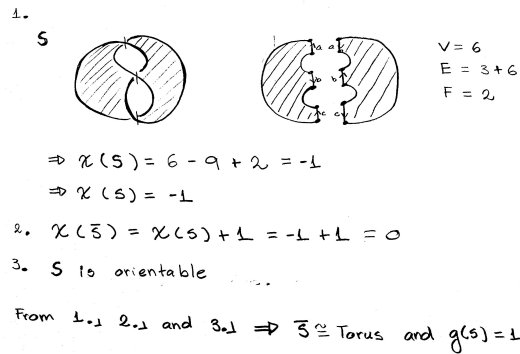 1.
S
a a
b b
c c
V = 6
E = 3 + 6
F = 2
⇒ χ(S) = 6 - 9 + 2 = -1
⇒ χ(S) = -1
2. χ(S̄) = χ(S) + 1 = -1 + 1 = 0
3. S is orientable
From 1., 2., and 3., ⇒ S̄ ≅ Torus and g(S) = 1